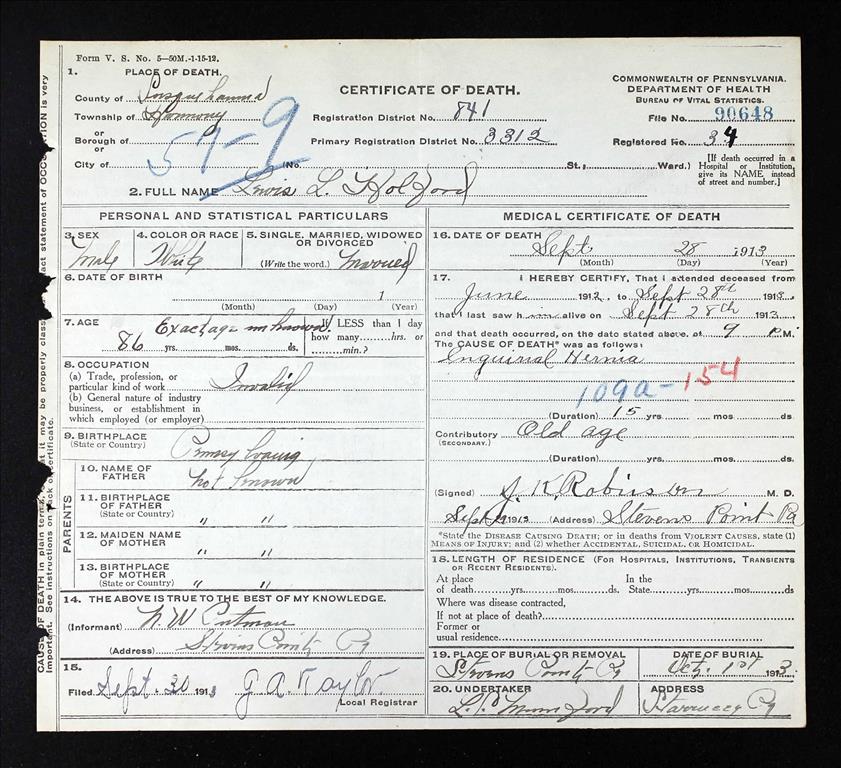 Form V. S. No. 5—50M.-1-15-12.
1. PLACE OF DEATH.
County of Susquehanna
Township of Harmony
or
Borough of
City of
57-9
CERTIFICATE OF DEATH.
Registration District No. 841
Primary Registration District No. 3312
(No. St., Ward.)
COMMONWEALTH OF PENNSYLVANIA.
DEPARTMENT OF HEALTH
BUREAU OF VITAL STATISTICS.
File No. 90648
Registered No. 34
[If death occurred in a Hospital or Institution, give its NAME instead of street and number.]
2. FULL NAME Lewis L. Holford
PERSONAL AND STATISTICAL PARTICULARS
3. SEX
Male
4. COLOR OR RACE
White
5. SINGLE, MARRIED, WIDOWED OR DIVORCED
(Write the word.)
6. DATE OF BIRTH
1
(Month) (Day) (Year)
7. AGE Exact age unknown
86 yrs. mos. ds.
If LESS than 1 day
how many hrs. or
min.?
8. OCCUPATION
(a) Trade, profession, or
particular kind of work Invalid
(b) General nature of industry
business, or establishment in
which employed (or employer)
9. BIRTHPLACE
(State or Country)
PARENTS
10. NAME OF FATHER
not known
11. BIRTHPLACE OF FATHER
(State or Country) " "
12. MAIDEN NAME OF MOTHER " "
13. BIRTHPLACE OF MOTHER
(State or Country) " "
14. THE ABOVE IS TRUE TO THE BEST OF MY KNOWLEDGE.
(Informant) N. W Putman
(Address) Stevens Point Pa
15.
Filed Sept. 30 1913 G. A. Taylor
Local Registrar
MEDICAL CERTIFICATE OF DEATH
16. DATE OF DEATH
Sept 28 1913
(Month) (Day) (Year)
17. I HEREBY CERTIFY, That I attended deceased from
June 1912, to Sept 28th 1913,
that I last saw him alive on Sept 28th 1913
and that death occurred, on the date stated above, at 9 P.M.
The CAUSE OF DEATH* was as follows:
Inguinal Hernia
109a-154
(Duration) 15 yrs. mos. ds.
Contributory Old age
(SECONDARY.)
(Duration) yrs. mos. ds.
(Signed) J. K. Robinson M. D.
Sept 1913 (Address) Stevens Point Pa
*State the DISEASE CAUSING DEATH; or in deaths from VIOLENT CAUSES, state (1) MEANS OF INJURY; and (2) whether ACCIDENTAL, SUICIDAL, OR HOMICIDAL.
18. LENGTH OF RESIDENCE (FOR HOSPITALS, INSTITUTIONS, TRANSIENTS OR RECENT RESIDENTS).
At place In the
of death yrs. mos. ds. State yrs. mos. ds
Where was disease contracted,
If not at place of death?
Former or
usual residence
19. PLACE OF BURIAL OR REMOVAL
Stevens Point Pa
DATE OF BURIAL
Oct. 1st 1913
20. UNDERTAKER
L. P. Mumford
ADDRESS
Starrucca Pa